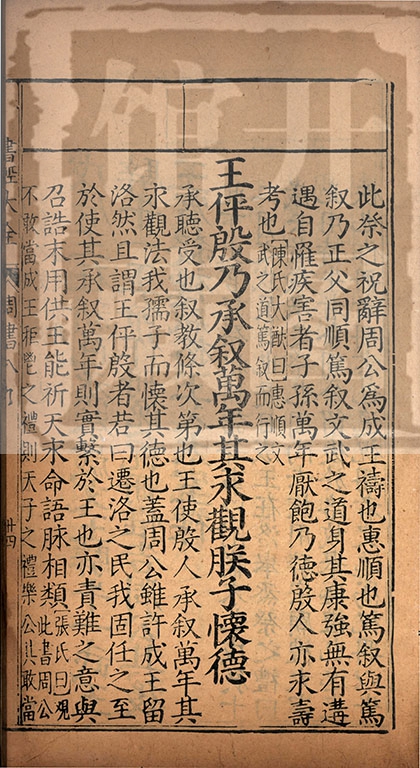 此祭之祝辭周公爲成王禱也惠順也篤叙與篤
叙乃正父同順篤叙文武之道身其康強無有遘
遇自罹疾害者子孫萬年厭飽乃德殷人亦永壽
考也
陳氏大猷曰惠順文
武之道篤叙而行之
王伻殷乃承叙萬年其永觀朕子懷德
承聽受也叙教條次第也王使殷人承叙萬年其
永觀法我孺子而懷其德也蓋周公雖許成王留
洛然且謂王伻殷者若曰遷洛之民我固任之至
於使其承叙萬年則實繫於王也亦責難之意與
召誥末用供王能祈天永命語脉相類
張氏曰觀
此書周公
不敢當成王秬鬯之禮則天子之禮樂公其敢當